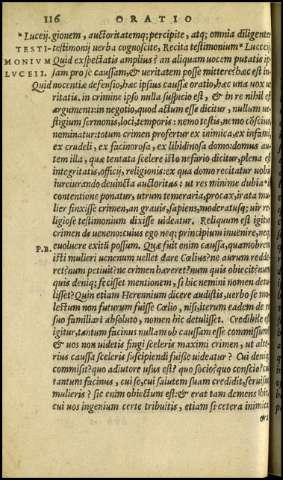 116 ORATIO
*Luceij.gionem, auctoritatemq; percipite, atq; omnia diligenter
TESTI- testimonij uerba cognoscite, Recita testimonium* Lucceij
MONIVM Quid exspectatis amplius? an aliquam uocem putatis ip
LVCEII. sam pro se caussam, & ueritatem posse mittere? hæc est in-
Quid nocentiæ defensio, hæc ipsius caussæ oratio, hæc una uox ue
ritatis. in crimine ipso nulla suspicio est, & in re nihil est
argumenti: in negotio, quod actum esse dicitur, nullum ue
stigium sermonis, loci, temporis: nemo testis, nemo conscius
nominatur: totum crimen profertur ex inimica, ex infami,
ex crudeli, ex facinorosa, ex libidinosa domo: domus au-
tem illa, quæ tentata scelere isto nefario dicitur, plena est
integritatis, officij, religionis: ex qua domo recitatur uobis
iureiurando deuincta auctoritas: ut res minime dubia in
contentione ponatur, utrum temeraria, procax, irata mu-
lier finxisse crimen, an grauis, sapiens, moderatusq; uir re
ligiose testimonium dixisse uideatur. Reliquum est igitur
crimen de ueneno: cuius ego neq; principium inuenire, neq;
euoluere exitū possum. Quæ fuit enim caussa, quamobrem
P.B. isti mulieri uenenum uellet dare Cælius? ne aurum redde-
ret? num petiuit? ne crimen hæreret? num quis obiecit? num
quis deniq; fecisset mentionem, si hic nemini nomen detu
lisset? Quin etiam Herennium dicere audistis, uerbo se mo
lestum non futurum fuisse Cælio, nisi, iterum eadem de re
suo familiari absoluto, nomen hic detulisset. Credibile est
igitur, tantum facinus nullam ob caussam esse commissum?
& uos non uidetis fingi sceleris maximi crimen, ut alte-
rius caussa sceleris suscipiendi fuisse uideatur? Cui deniq;
commisit? quo adiutore usus est? quo socio? quo conscio? cui
tantum facinus, cui se, cui salutem suam credidit, seruisne
mulieris? sic enim obiectum est: & erat tam demens hic,
cui uos ingenium certe tribuitis, etiam si cetera inimica